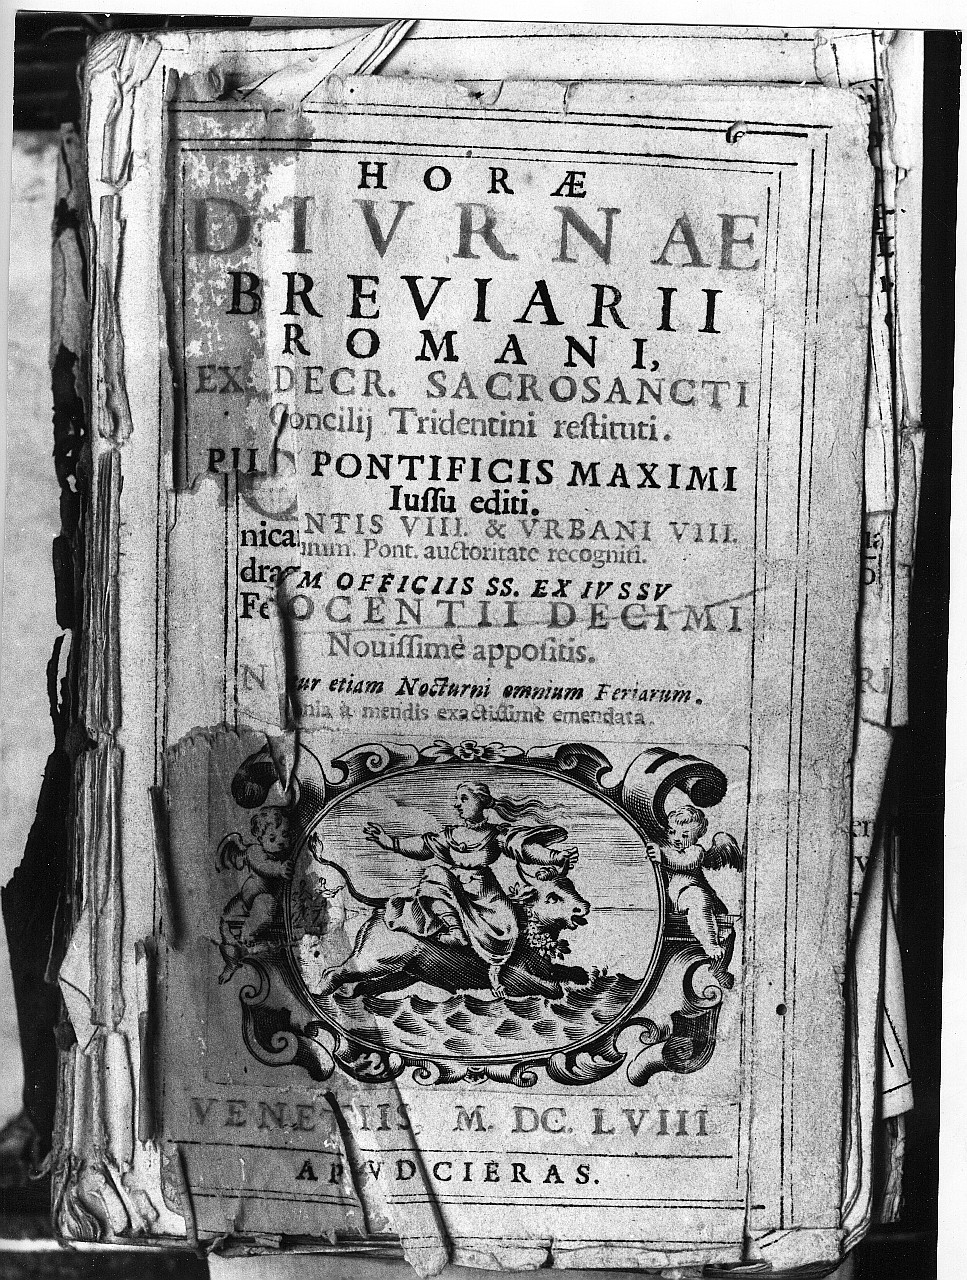 HORÆ
DIVRNAE
BREVIARII
ROMANI,
EX DECR. SACROSANCTI
Concilij Tridentini restituti.
PII PONTIFICIS MAXIMI
Iussu editi.
NTIS VIII. & VRBANI VIII.
nica
mm. Pont. auctoritate recogniti.
M OFFICIIS SS. EX IVSSV
OCENTII DECIMI
Nouissimè appositis.
N ur etiam Nocturni omnium Feriarum.
nia à mendis exactissimè emendata.
VENETIIS, M. DC. LVIII
APVD CIERAS.